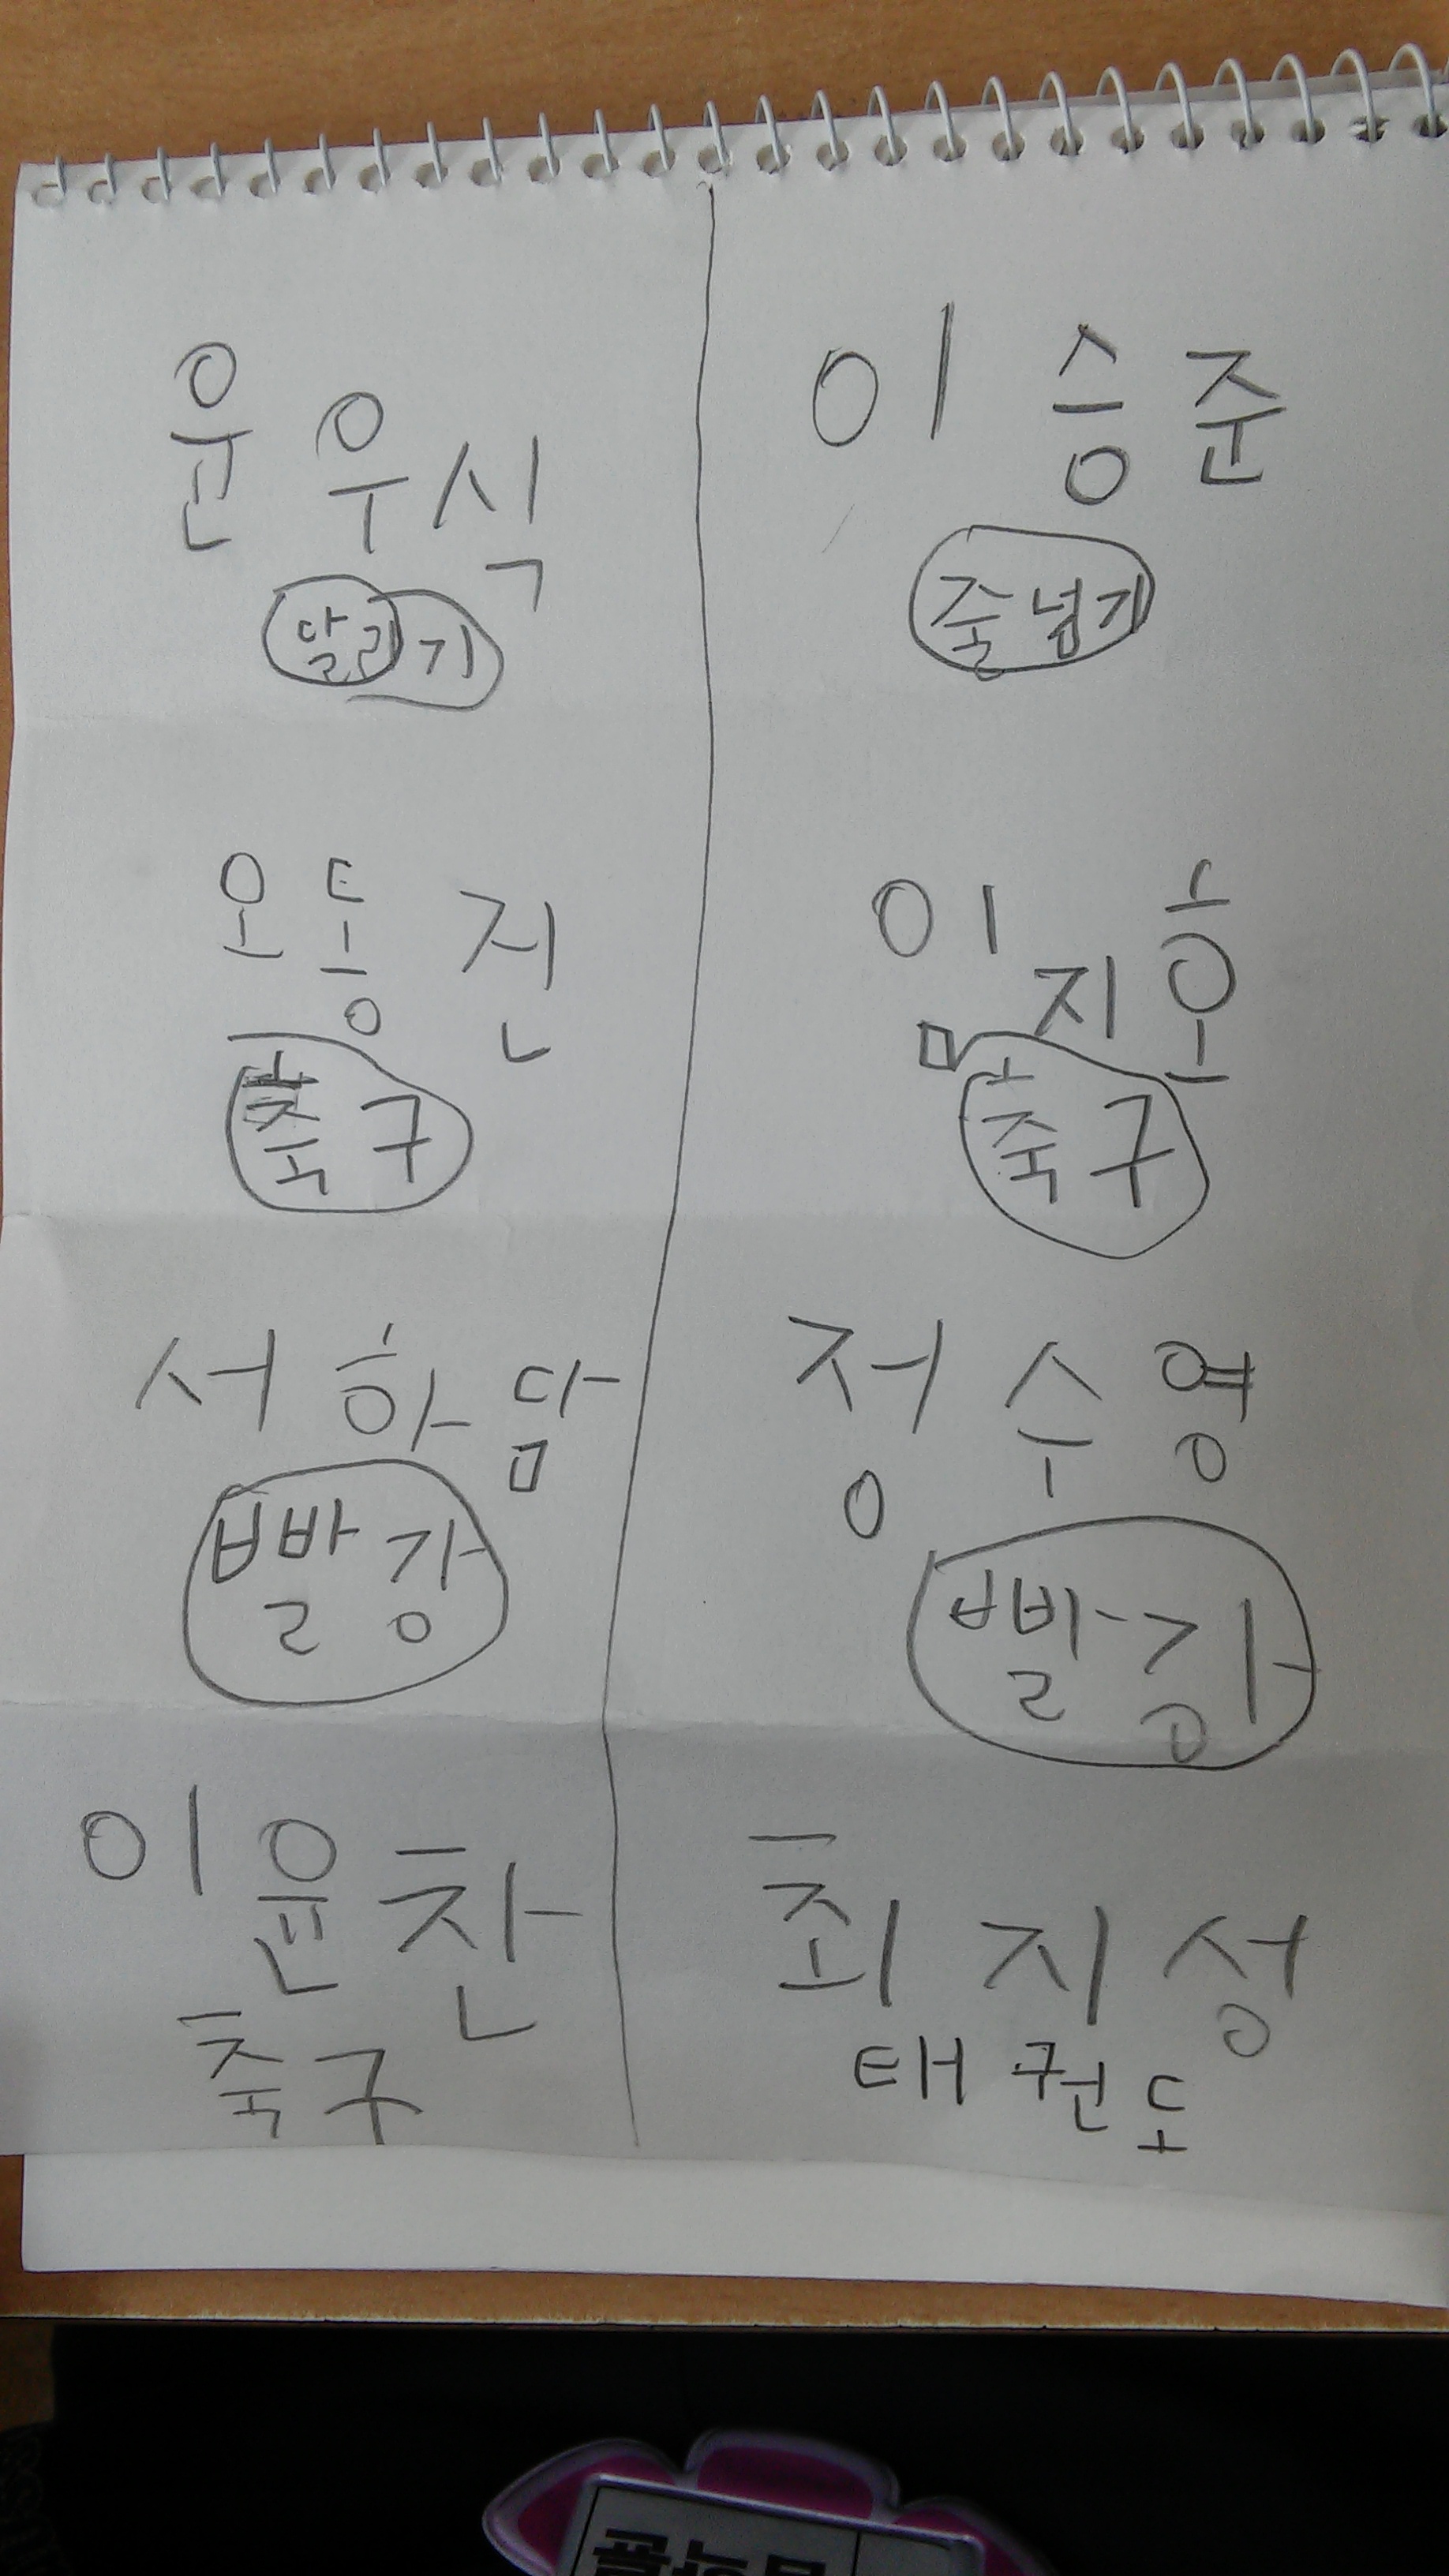 윤우식
달리기
이승준
줄넘기
오동진
축구
임지호
축구
서하담
빨강
정수영
빨강
이윤찬
축구
최지성
태권도